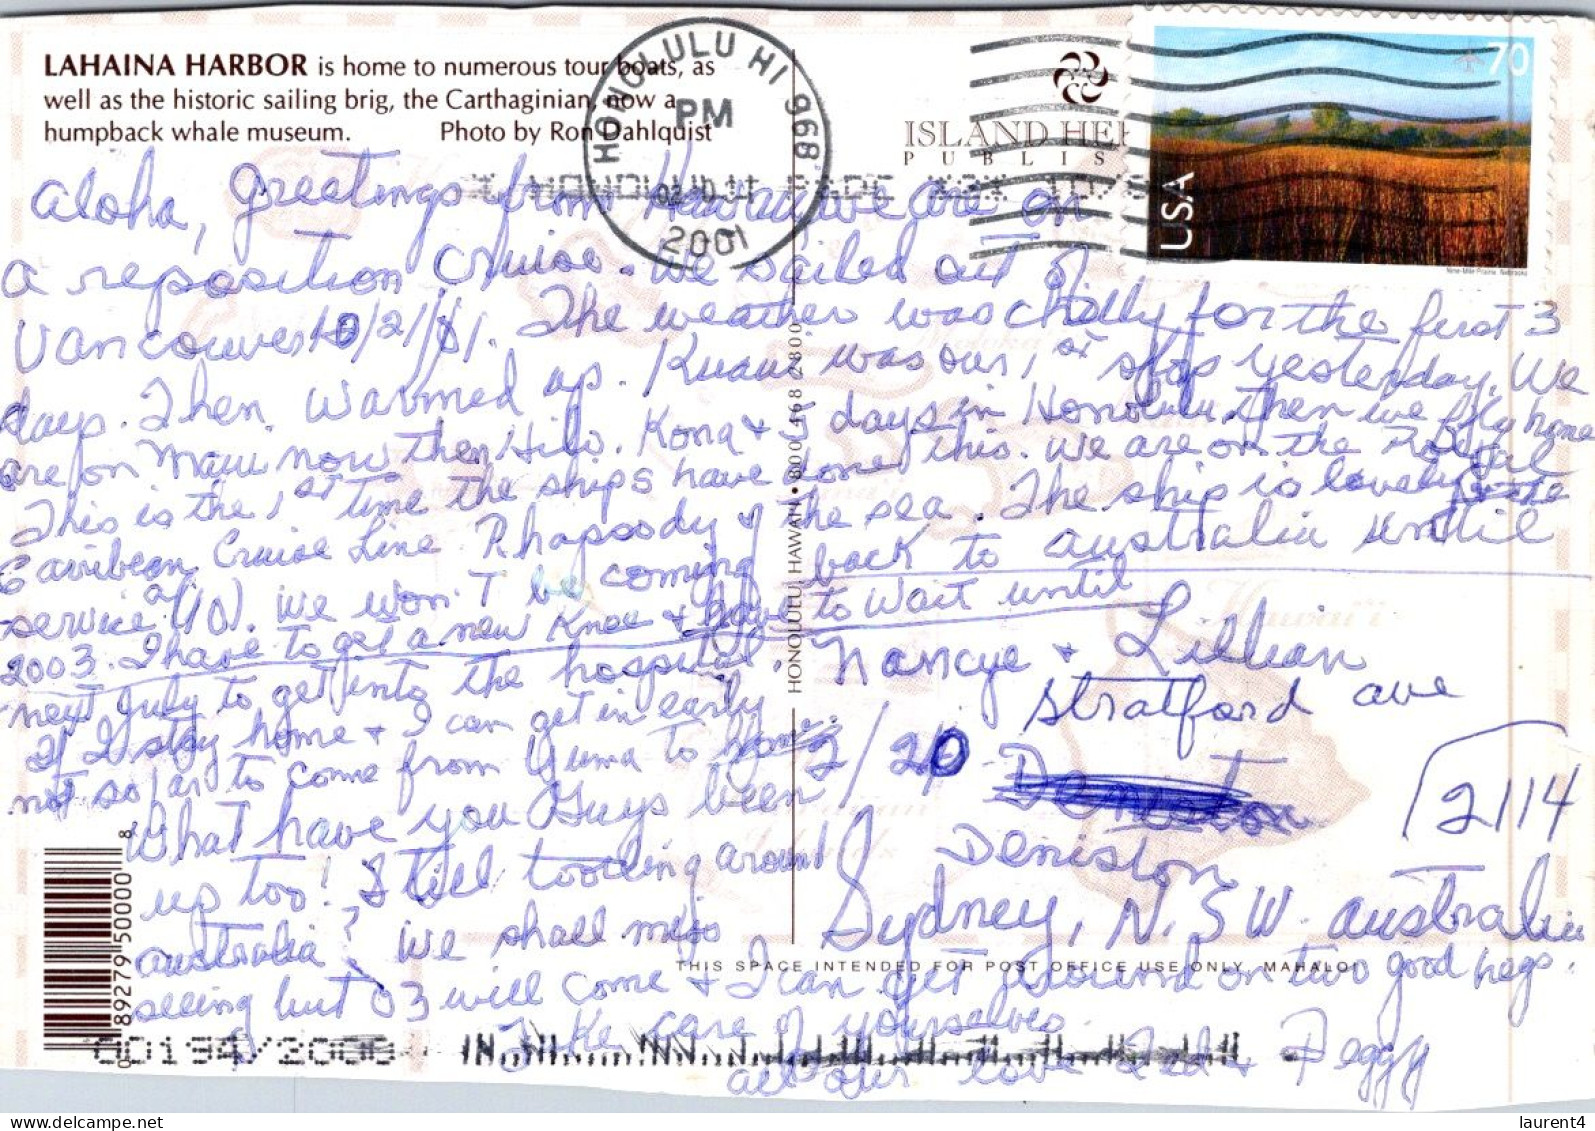 LAHAINA HARBOR is home to numerous tour boats, as
well as the historic sailing brig, the Carthaginian, now a
humpback whale museum. Photo by Ron Dahlquist
HONOLULU HI 968
PM
2001
ISLAND HE
PUBLIS
70
USA
Nine-Mile Prairie, Nebraska
Aloha, Greetings from Hawaii, we are on
a reposition Cruise. We sailed out of
Vancouver 10/2/01. The weather was chilly for the first 3
days. Then warmed up. Kuaui was our 1st stop yesterday. We
are on Maui now then Hilo. Kona + days in Honolulu then we fly home
This is the 1st time the ships have done this. We are on the Royal
Caribbean Cruise Line Rhapsody of the sea. The ship is lovely + the
service a (10). We won't be coming back to Australia until
2003. I have to get a new Knee + have to wait until
next July to get into the hospital.
If I stay home + I can get in early
not so far to come from Yuma to home.
What have you Guys been
up too! Still tooting around
Australia? We shall miss
seeing but 03 will come + I can get around on two good legs.
Take care of yourselves
all our love Ted & Peggy
Nancye + Lillian
2/20 Stratford ave
Deniston
Deniston
2114
Sydney, N.S.W. Australia
HONOLULU HAWAII • 800 468 2800
THIS SPACE INTENDED FOR POST OFFICE USE ONLY, MAHALO!
0 89279 50000 8
00194/2000
laurent4